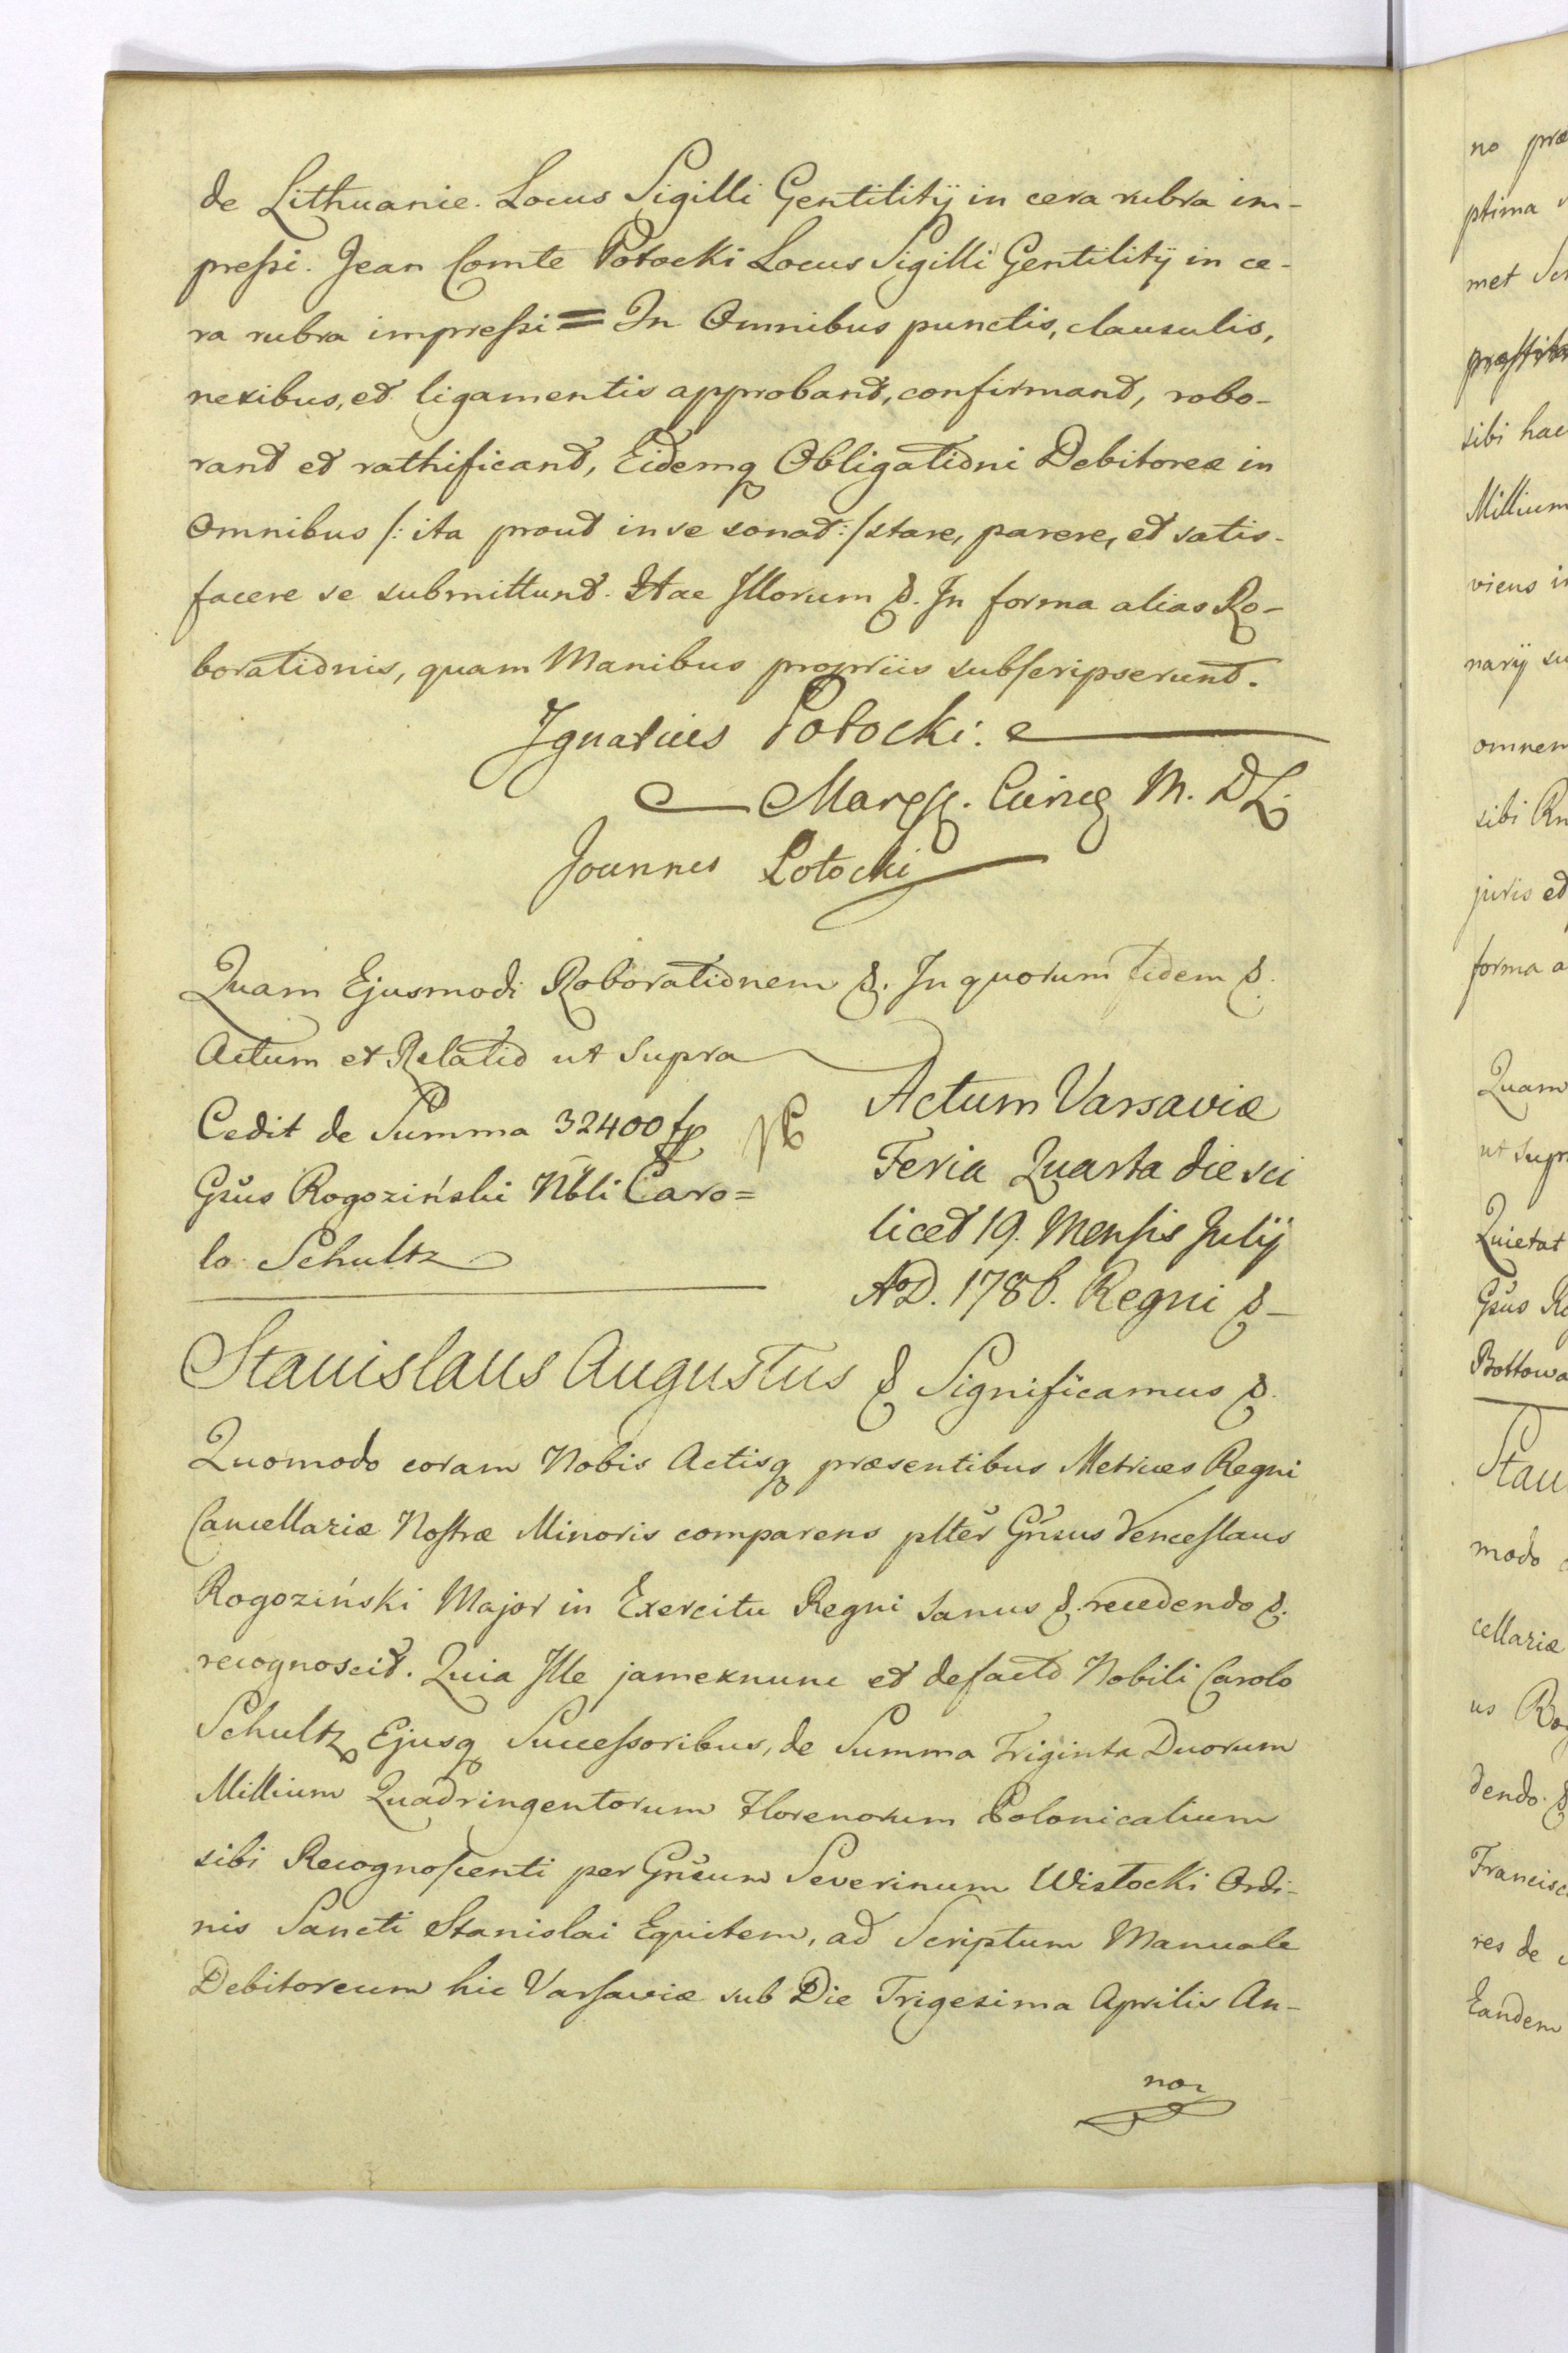 de Lithuanie. Locus Sigilli Gentilitij in cera rubra im-
preſsi. Jean Comte Potocki Locus Sigilli Gentilitij in ce-
ra rubra impreſsi = In Omnibus punctis, clausulis,
nexibus, et ligamentis approbant, confirmant, robo-
rant et rathificant, Eidemq Obligationi Debitoreæ in
Omnibus /: ita prout in se sonat :/ stare, parere, et satis-
facere se submittunt. Hae Illorum &. In forma alias Ro-
borationis, quam Manibus propriis subſcripserunt.
Ignatius Potocki.
Mareſ. Curiæ M. D L.
Joannes Potocki
Quam Ejusmodi Roborationem &. In quorum fidem &.
Actum et Relatio ut supra
Cedit de Summa 32400 fp
Gsus Rogoziński Nbli Caro=
lo Schultz
Actum Varsaviæ
Feria Quarta die sci
licet 19. Menſis Julij
AD. 1786. Regni &
Stanislaus Augustus & Significamus &.
Quomodo coram Nobis Actisq præsentibus Metrices Regni
Cancellariæ Noſtræ Minoris comparens plter Gnsus Venceſlaus
Rogoziński Major in Exercitu Regni sanus &. recedendo &.
recognoscit. Quia Ille jamexnunc et defacto Nobili Carolo
Schultz Ejusq Succeſsoribus, de Summa Triginta Duorum
Millium Quadringentorum Florenorum Polonicalium
sibi Recognoſcenti per Gnsum Severinum Wistocki Ordi-
nis Sancti Stanislai Equitem, ad Scriptum Manuale
Debitoreum hic Varſaviæ sub Die Trigesima Aprilis An-
no
no præ
ptima
met
sibi hac
Millium
viens
narij su
omnem
sibi
juris et
forma a
Quam
ut supr
Quietat
Gsus Ro
Bottowa
Stau
modo
cellariæ
us
dendo. &
Francisc
res de
Eandem